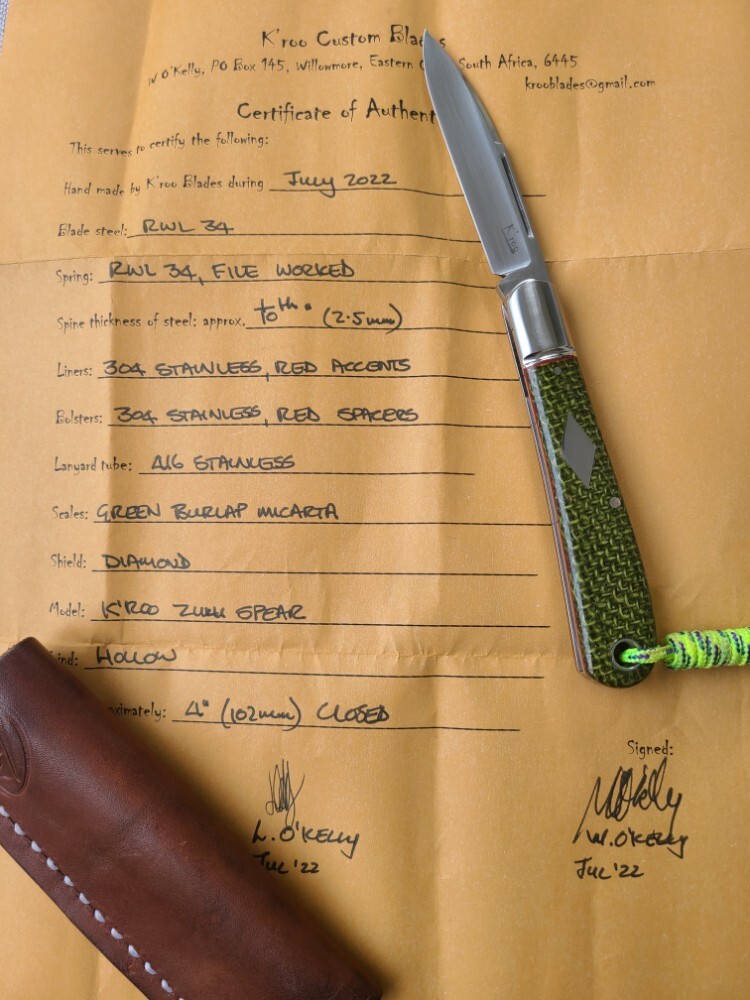 K'roo Custom Blades
W O'Kelly, PO Box 145, Willowmore, Eastern C South Africa, 6445
krooblades@gmail.com
Certificate of Authent
This serves to certify the following:
Hand made by K'roo Blades during July 2022
Blade steel: RWL 34
K'roo
Spring: RWL 34, FILE WORKED
Spine thickness of steel: approx. 1/10th " (2.5mm)
Liners: 304 STAINLESS, RED ACCENTS
Bolsters: 304 STAINLESS, RED SPACERS
Lanyard tube: 416 STAINLESS
Scales: GREEN BURLAP MICARTA
Shield: DIAMOND
Model: K'ROO ZULU SPEAR
ind: HOLLOW
ximately: 4" (102mm) CLOSED
Signed:
L. O'KELLY
W. O'KELLY
JUL '22
JUL '22